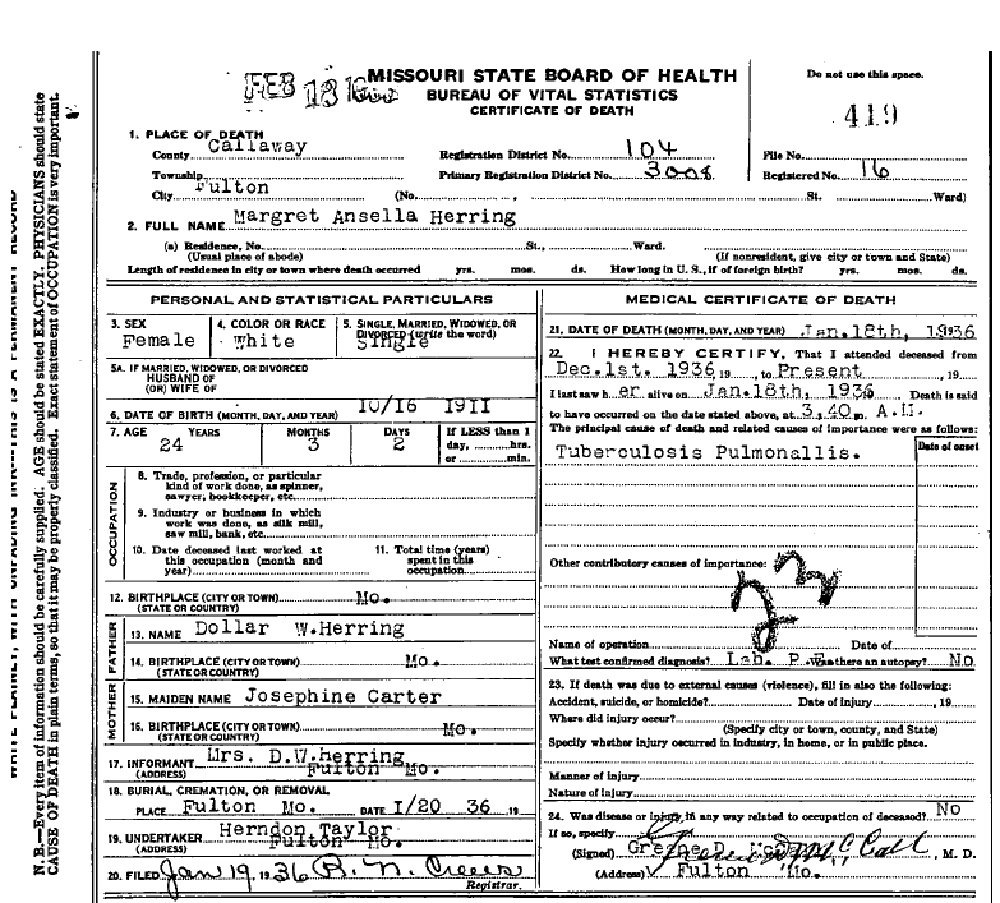 FEB 13
MISSOURI STATE BOARD OF HEALTH
BUREAU OF VITAL STATISTICS
CERTIFICATE OF DEATH
Do not use this space.
419
1. PLACE OF DEATH
County Callaway Registration District No. 104 File No.
Township Primary Registration District No. 3008 Registered No. 16
City Fulton (No. , St. Ward)
2. FULL NAME Margret Ansella Herring
(a) Residence, No. St., Ward.
(Usual place of abode) (If nonresident, give city or town and State)
Length of residence in city or town where death occurred yrs. mos. ds. How long in U. S., if of foreign birth? yrs. mos. ds.
PERSONAL AND STATISTICAL PARTICULARS
3. SEX Female
4. COLOR OR RACE White
5. SINGLE, MARRIED, WIDOWED, OR
DIVORCED (write the word)
Single
5A. IF MARRIED, WIDOWED, OR DIVORCED
HUSBAND OF
(OR) WIFE OF
6. DATE OF BIRTH (MONTH, DAY, AND YEAR) 10/16 1911
7. AGE YEARS MONTHS DAYS If LESS than 1
24 3 2 day, hrs.
or min.
OCCUPATION
8. Trade, profession, or particular
kind of work done, as spinner,
sawyer, bookkeeper, etc.
9. Industry or business in which
work was done, as silk mill,
saw mill, bank, etc.
10. Date deceased last worked at
this occupation (month and
year)
11. Total time (years)
spent in this
occupation
12. BIRTHPLACE (CITY OR TOWN) Mo.
(STATE OR COUNTRY)
FATHER
13. NAME Dollar W.Herring
14. BIRTHPLACE (CITY OR TOWN) Mo.
(STATE OR COUNTRY)
MOTHER
15. MAIDEN NAME Josephine Carter
16. BIRTHPLACE (CITY OR TOWN) Mo.
(STATE OR COUNTRY)
17. INFORMANT Mrs. D.W.herring
(ADDRESS) Fulton Mo.
18. BURIAL, CREMATION, OR REMOVAL
PLACE Fulton Mo. DATE 1/20 36 , 19
19. UNDERTAKER Herndon Taylor
(ADDRESS) Fulton Mo.
20. FILED Jan 19, 1936 R. N. Crews
Registrar.
MEDICAL CERTIFICATE OF DEATH
21. DATE OF DEATH (MONTH, DAY, AND YEAR) Jan.18th, 1936
22. I HEREBY CERTIFY, That I attended deceased from
Dec.1st. 1936, 19 , to Present , 19
I last saw h er alive on Jan.18th, 1936 Death is said
to have occurred on the date stated above, at 3,40 m. A.M.
The principal cause of death and related causes of importance were as follows:
Date of onset
Tuberculosis Pulmonallis.
Other contributory causes of importance:
Name of operation Date of
What test confirmed diagnosis? Lab. P.E. Was there an autopsy? No
23. If death was due to external causes (violence), fill in also the following:
Accident, suicide, or homicide? Date of injury , 19
Where did injury occur?
(Specify city or town, county, and State)
Specify whether injury occurred in industry, in home, or in public place.
Manner of injury
Nature of injury
24. Was disease or injury in any way related to occupation of deceased? No
If so, specify
(Signed) Greene D. McCall , M. D.
(Address) Fulton Mo.
N. B.—Every item of information should be carefully supplied. AGE should be stated EXACTLY. PHYSICIANS should state
CAUSE OF DEATH in plain terms, so that it may be properly classified. Exact statement of OCCUPATION is very important.